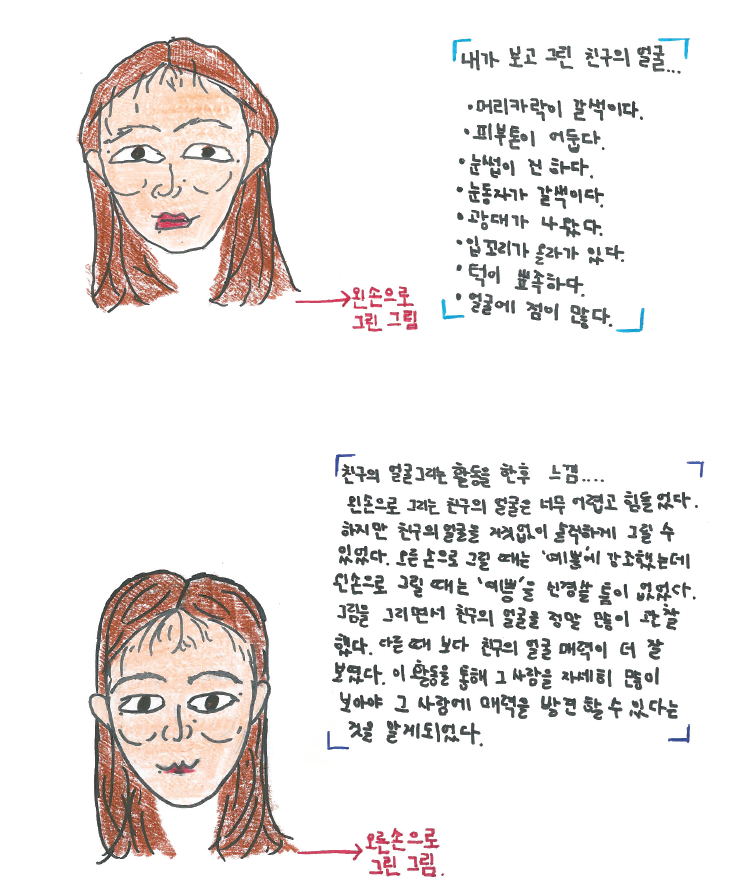 내가 보고 그린 친구의 얼굴...
• 머리카락이 갈색이다.
• 피부톤이 어둡다.
• 눈썹이 진 하다.
• 눈동자가 갈색이다.
• 광대가 나왔다.
• 입꼬리가 올라가 있다.
• 턱이 뾰족하다.
• 얼굴에 점이 많다.
왼손으로
그린 그림
친구의 얼굴그리는 활동을 한후 느낌....
왼손으로 그리는 친구의 얼굴은 너무 어렵고 힘들었다.
하지만 친구의얼굴을 거짓없이 솔직하게 그릴 수
있었다. 오른손으로 그릴 때는 '예쁨'에 강조했는데
왼손으로 그릴 때는 '예쁨'을 신경쓸 틈이 없었다.
그림을 그리면서 친구의 얼굴을 정말 많이 관찰
했다. 다른 때 보다 친구의 얼굴 매력이 더 잘
보였다. 이 활동을 통해 그 사람을 자세히 많이
보아야 그 사람에 매력을 발견 할 수 있다는
것을 알게되었다.
오른손으로
그린 그림.